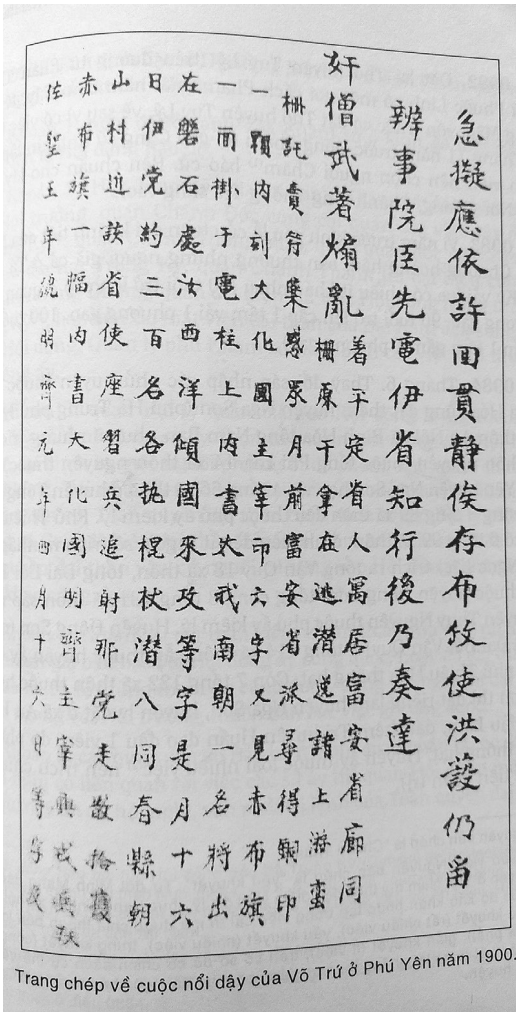 急擬應依許回貫靜俟存布攽使洪蔎仍畱
辦事院臣先電伊省知行後乃奏達
奸僧武著煽亂著平定省人寓居富安省廊同
柵原干拿在逃潛遊諸上游蠻
柵託賣符藥惑眾月前富安省派尋得銅印
一顆內刻大化國主宰印六字又見赤布旗
一面掛于電柱上內書大我南朝一名將出
在磐石處汝西洋傾國來攻等字是月十六
日伊党約三百名各执棍杖潛入同春縣朝
山村近該省使座習兵追射那党走散拾獲
赤布旗一幅內書大化国明齊主宰興戎興
佐聖王年號明齊元年四月十六日等字
Trang chép về cuộc nổi dậy của Võ Trứ ở Phú Yên năm 1900.